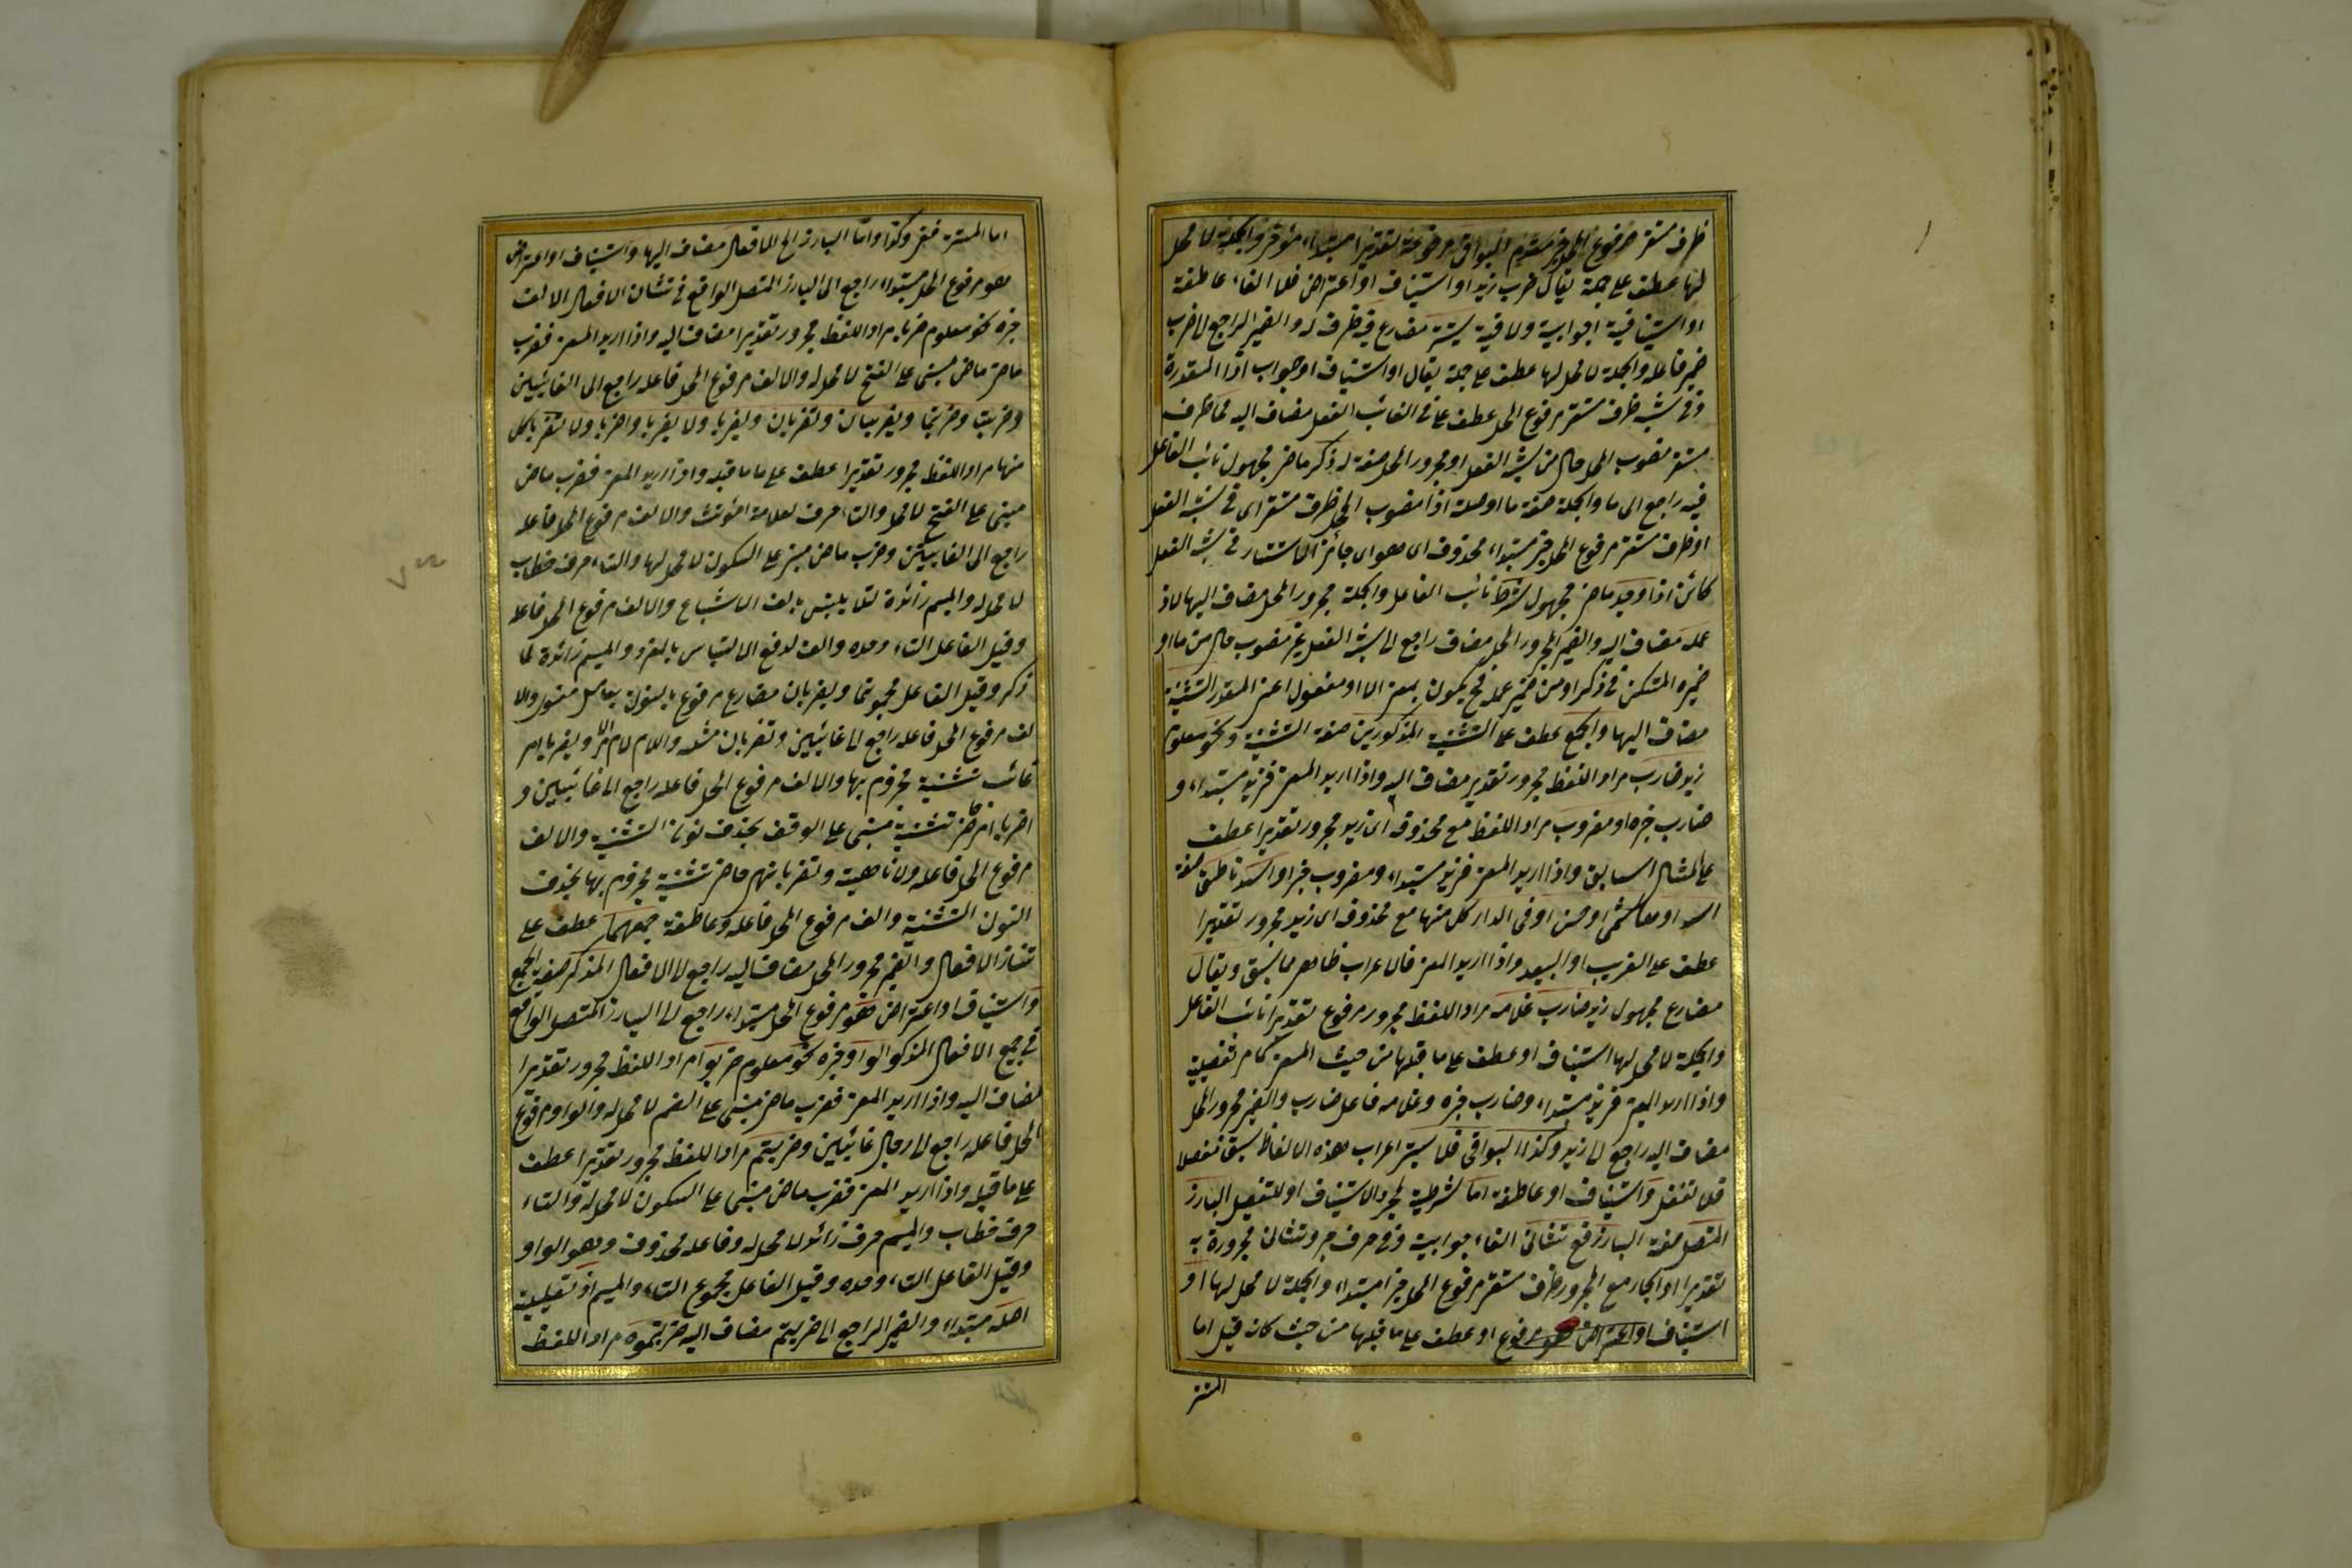 ظرف مستقر مرفوع المحل خبر مقدم البواقي مرفوعة تقديرا مبتداء مؤخر والجملة لا محل
لها عطف على جملة يقال ضرب زيد او استيناف او اعتراض فلا الفاء عاطفة
او استينافية اجوابية ولا نافية يستتر مضارع فيه ظرف له والضمير الراجع الى ضرب
ضمير فاعله والجملة لا محل لها عطف على جملة يقال او استيناف او جواب اذا المقدرة
وفي شبه ظرف مستقر مرفوع المحل عطف على في الغائب الفعل مضاف اليه مما ظرف
مستقر منصوب المحل حال من شبه الفعل او مجرور المحل صفة له ذكر ماض مجهول نائب الفاعل
فيه راجع الى ما والجملة صفة ما او صلة اذا منصوب المحل ظرف مستقر اى في شبه الفعل
او ظرف مستقر مرفوع المحل خبر مبتداء محذوف اى هو اى جائز الاستتار في شبه الفعل
كائن اذا وجد ماض مجهول شرط نائب الفاعل والجملة مجرور المحل مضاف اليها لاذ
عمله مضاف اليه والضمير المجرور المحل مضاف راجع الى شبه الفعل غير منصوب حال من ما او
ضميره المستكن في ذكر او من ضمير عمله فح يكون بمعنى الا او مفعول اعنى المقدر التثنية
مضاف اليها والجمع عطف على التثنية المذكورين صفة التثنية ونحو معلوم
زيد ضارب مراد اللفظ مجرور تقدير مضاف اليه واذا اريد المعنى فزيد مبتداء و
ضارب خبره او مضروب مراد اللفظ مع محذوفه اى زيد مجرور تقديرا عطف
على المثال السابق واذا اريد المعنى فزيد مبتداء ومضروب خبر او اسد ناطق صفة
اسد او هاشمى او حسن او فى الدار كل منها مع محذوف اى زيد مجرور تقديرا
عطف على القريب او البعيد واذا اريد المعنى فالاعراب ظاهر مما سبق ويقال
مضارع مجهول زيد ضارب غلامه مراد اللفظ مجرور مرفوع تقديرا نائب الفاعل
والجملة لا محل لها استيناف او عطف على ما قبلها من حيث المعنى كما مر تفصيله
واذا اريد المعنى فزيد مبتداء وضارب خبره وغلامه فاعل ضارب والضمير مجرور المحل
مضاف اليه راجع الى زيد وكذا البواقى فلا يستتر اعراب هذه الالفاظ سبق مفصلا
فلا تغفل واستيناف او عاطفة اما شرطية لمجرد الاستيناف او للتفصيل البارز
المتصل صفة البارز ففى تثنا فى الفاء جوابية وفى حرف جر وتثانى مجرورة به
تقديرا او الجار مع المجرور ظرف مستقر مرفوع المحل خبر امبتداء والجملة لا محل لها او
استيناف او اعتراض او عطف على ما قبلها من حيث كانه قيل اما
المستتر
اما المستتر فنفى وكذا واما البارز الخ الافعال مضاف اليها واستيناف او اعتراض
هو مرفوع المحل مبتداء راجع الى البارز المتصل الواقع فى تثنا فى الافعال الالف
خبره نحو معلوم ضربا مراد اللفظ مجرور تقديرا مضاف اليه واذا اريد المعنى فضرب
ماض مبنى على الفتح لا محل له والالف مرفوع المحل فاعله راجع الى الغائبين
وضربت وضربتما ويضربان وتضربان وليضربا ولا يضربا واضربا ولا تضربا كل
منها مراد اللفظ مجرور تقديرا عطف على ما قبله واذا اريد المعنى فضرب ماض
مبنى على الفتح لا محل والتاء حرف لعلامة المؤنث والالف مرفوع المحل فاعله
راجع الى الغائبتين وضرب ماض مبنى على السكون لا محل لها والتاء حرف خطاب
لا محل له والميم زائدة لئلا يلتبس بالف الاشباع والالف مرفوع المحل فاعله
وقيل الفاعل التاء وحده والف لدفع الالتباس بالمفرد والميم زائدة لما
ذكر وقيل الفاعل مجموع تما ويضربان مضارع مرفوع بالنون بعامل معنوى والا
لف مرفوع المحل فاعله راجع الى غائبين وتضربان مثله واللام لام الامر ويضربا امر
غائب تثنية مجزوم بها والالف مرفوع المحل فاعله راجع الى غائبين و
اضربا امر حاضر تثنية مبنى على الوقف بحذف نون التثنية والالف
مرفوع المحل فاعله ولا ناهية وتضربا نهى حاضر تثنية مجزوم بها بحذف
النون التثنية والف مرفوع المحل فاعله وعاطفة جمعهما عطف على
تثنا الافعال والضمير مجرور المحل مضاف اليه راجع الى الافعال المذكر صفة الجمع
واستيناف او اعتراض فهو مرفوع المحل مبتداء راجع الى البارز المتصل الواقع
فى جمع الافعال المذكر الواو خبره نحو معلوم ضربوا مراد اللفظ مجرور تقديرا
مضاف اليه واذا اريد المعنى فضرب ماض مبنى على الضم لا محل له والواو مرفوع
المحل فاعله راجع الى رجال غائبين وضربتم مراد اللفظ مجرور تقديرا عطف
على ما قبله واذا اريد المعنى فضرب ماض مبنى على السكون لا محل له والتاء
حرف خطاب والميم حرف زائد لا محل له وفاعله محذوف وهو الواو
وقيل الفاعل التاء وحده وقيل الفاعل مجموع التاء والميم اذ تعليلية
اصله مبتداء والضمير الراجع الى ضربتم مضاف اليه ضربتموه مراد اللفظ